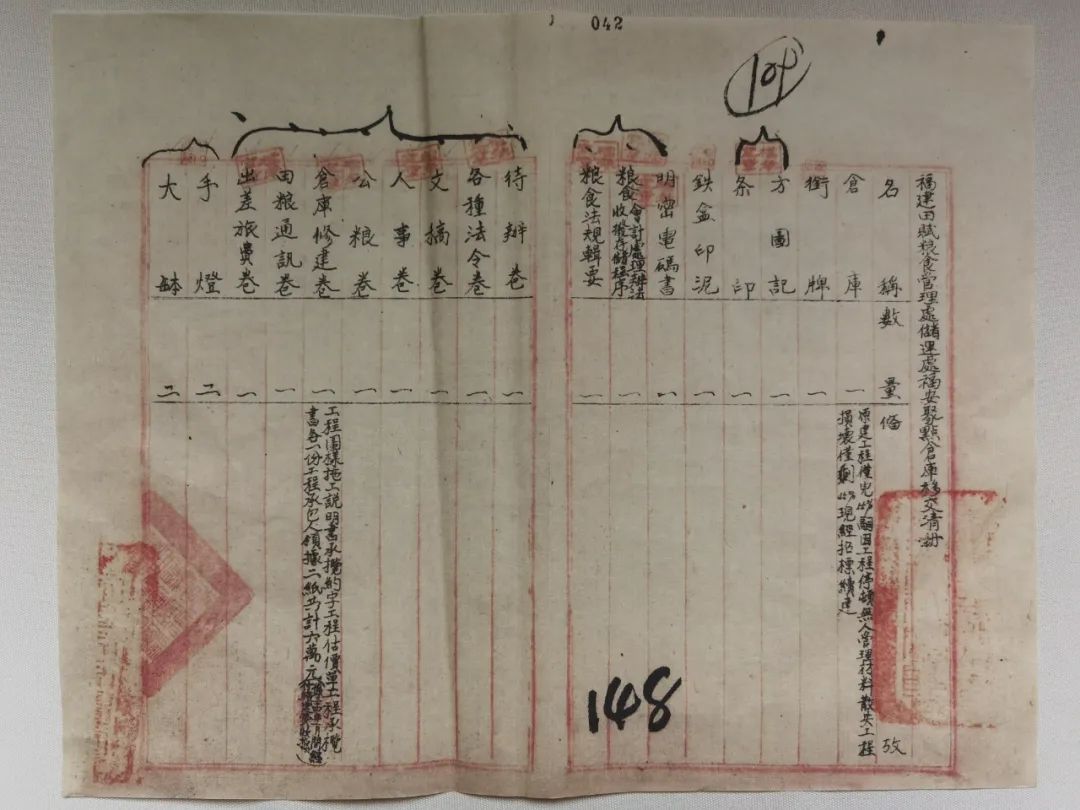 042
104
福建田賦粮食管理處儲運處福安聚點倉庫移交清册
名稱 數量 備攷
倉庫 一 原建工程僅完 嗣因工程停頓無人管理材料散失工程
損壞僅剩 現經招標續建
銜牌 一
方圖記 一
条印 一
鉄盒印泥 一
明密電碼書 一
粮食會計處理辦法
收撥存儲程序 一
粮食法規輯要 一
148
待辦卷 一
各種法令卷 一
文摘卷 一
人事卷 一
公粮卷 一
倉庫修建卷 一 工程圖樣施工説明書承攬約字工程估價單工程承攬
書各一份工程承包人領據二紙共計六萬元
田粮通訊卷 一
出差旅費卷 一
手燈 二
大缽 二